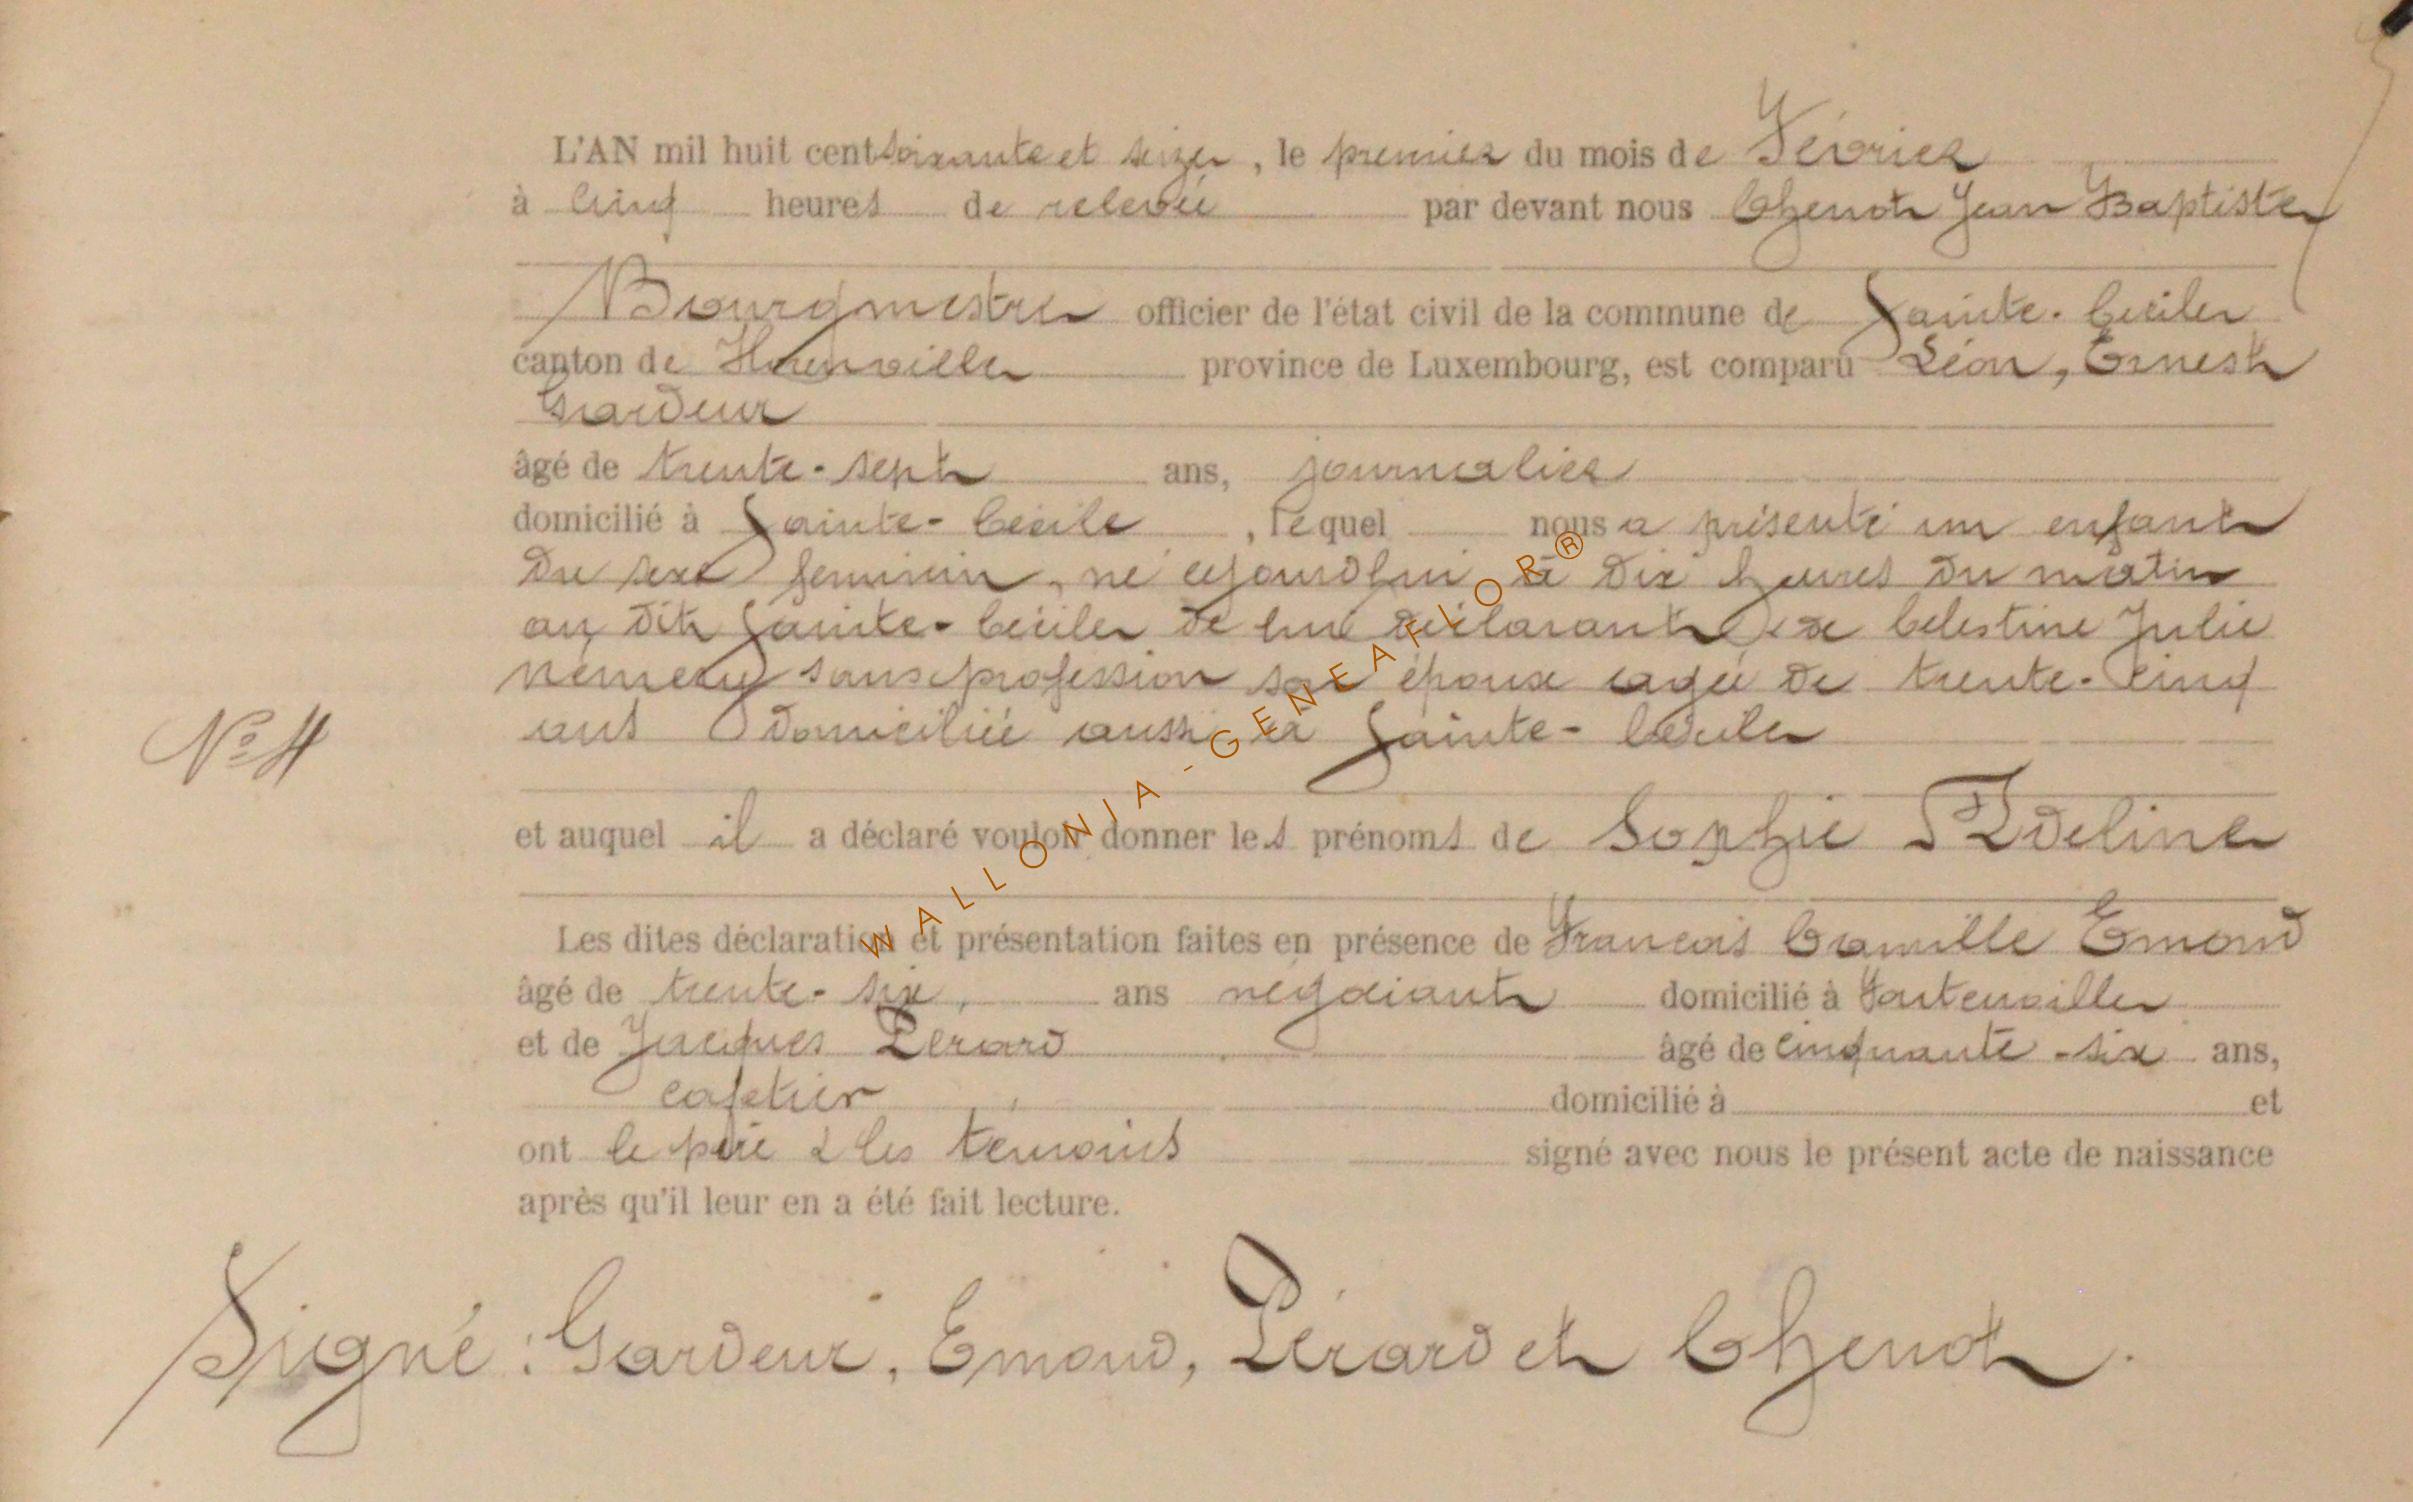 L'AN mil huit cent soixante et seize, le premier du mois de Février
à cinq heures de relevée par devant nous Chenot Jean Baptiste
Bourgmestre officier de l'état civil de la commune de Sainte-Cécile
canton de Florenville province de Luxembourg, est comparu Léon, Ernest
Gardeur
âgé de trente-sept ans, journalier
domicilié à Sainte-Cécile, lequel nous a présenté un enfant
du sexe feminin, né cejourdhui à dix heures du matin
au dit Sainte-Cécile de lui déclarant et de Celestine Julie
Németry sans profession son épouse agée de trente-cinq
ans domiciliée aussi à Sainte-Cécile
N° 4
et auquel il a déclaré vouloir donner les prénoms de Sophie Adeline
Les dites déclaration et présentation faites en présence de Francois Camille Emond
âgé de trente-six, ans négociant domicilié à Fontenoille
et de Jacques Pérard âgé de cinquante-six ans,
cafetier domicilié à et
ont le père & les témoins signé avec nous le présent acte de naissance
après qu'il leur en a été fait lecture.
Signé : Gardeur, Emond, Pérard et Chenot.
WALLONIA - GENEAFLOR®